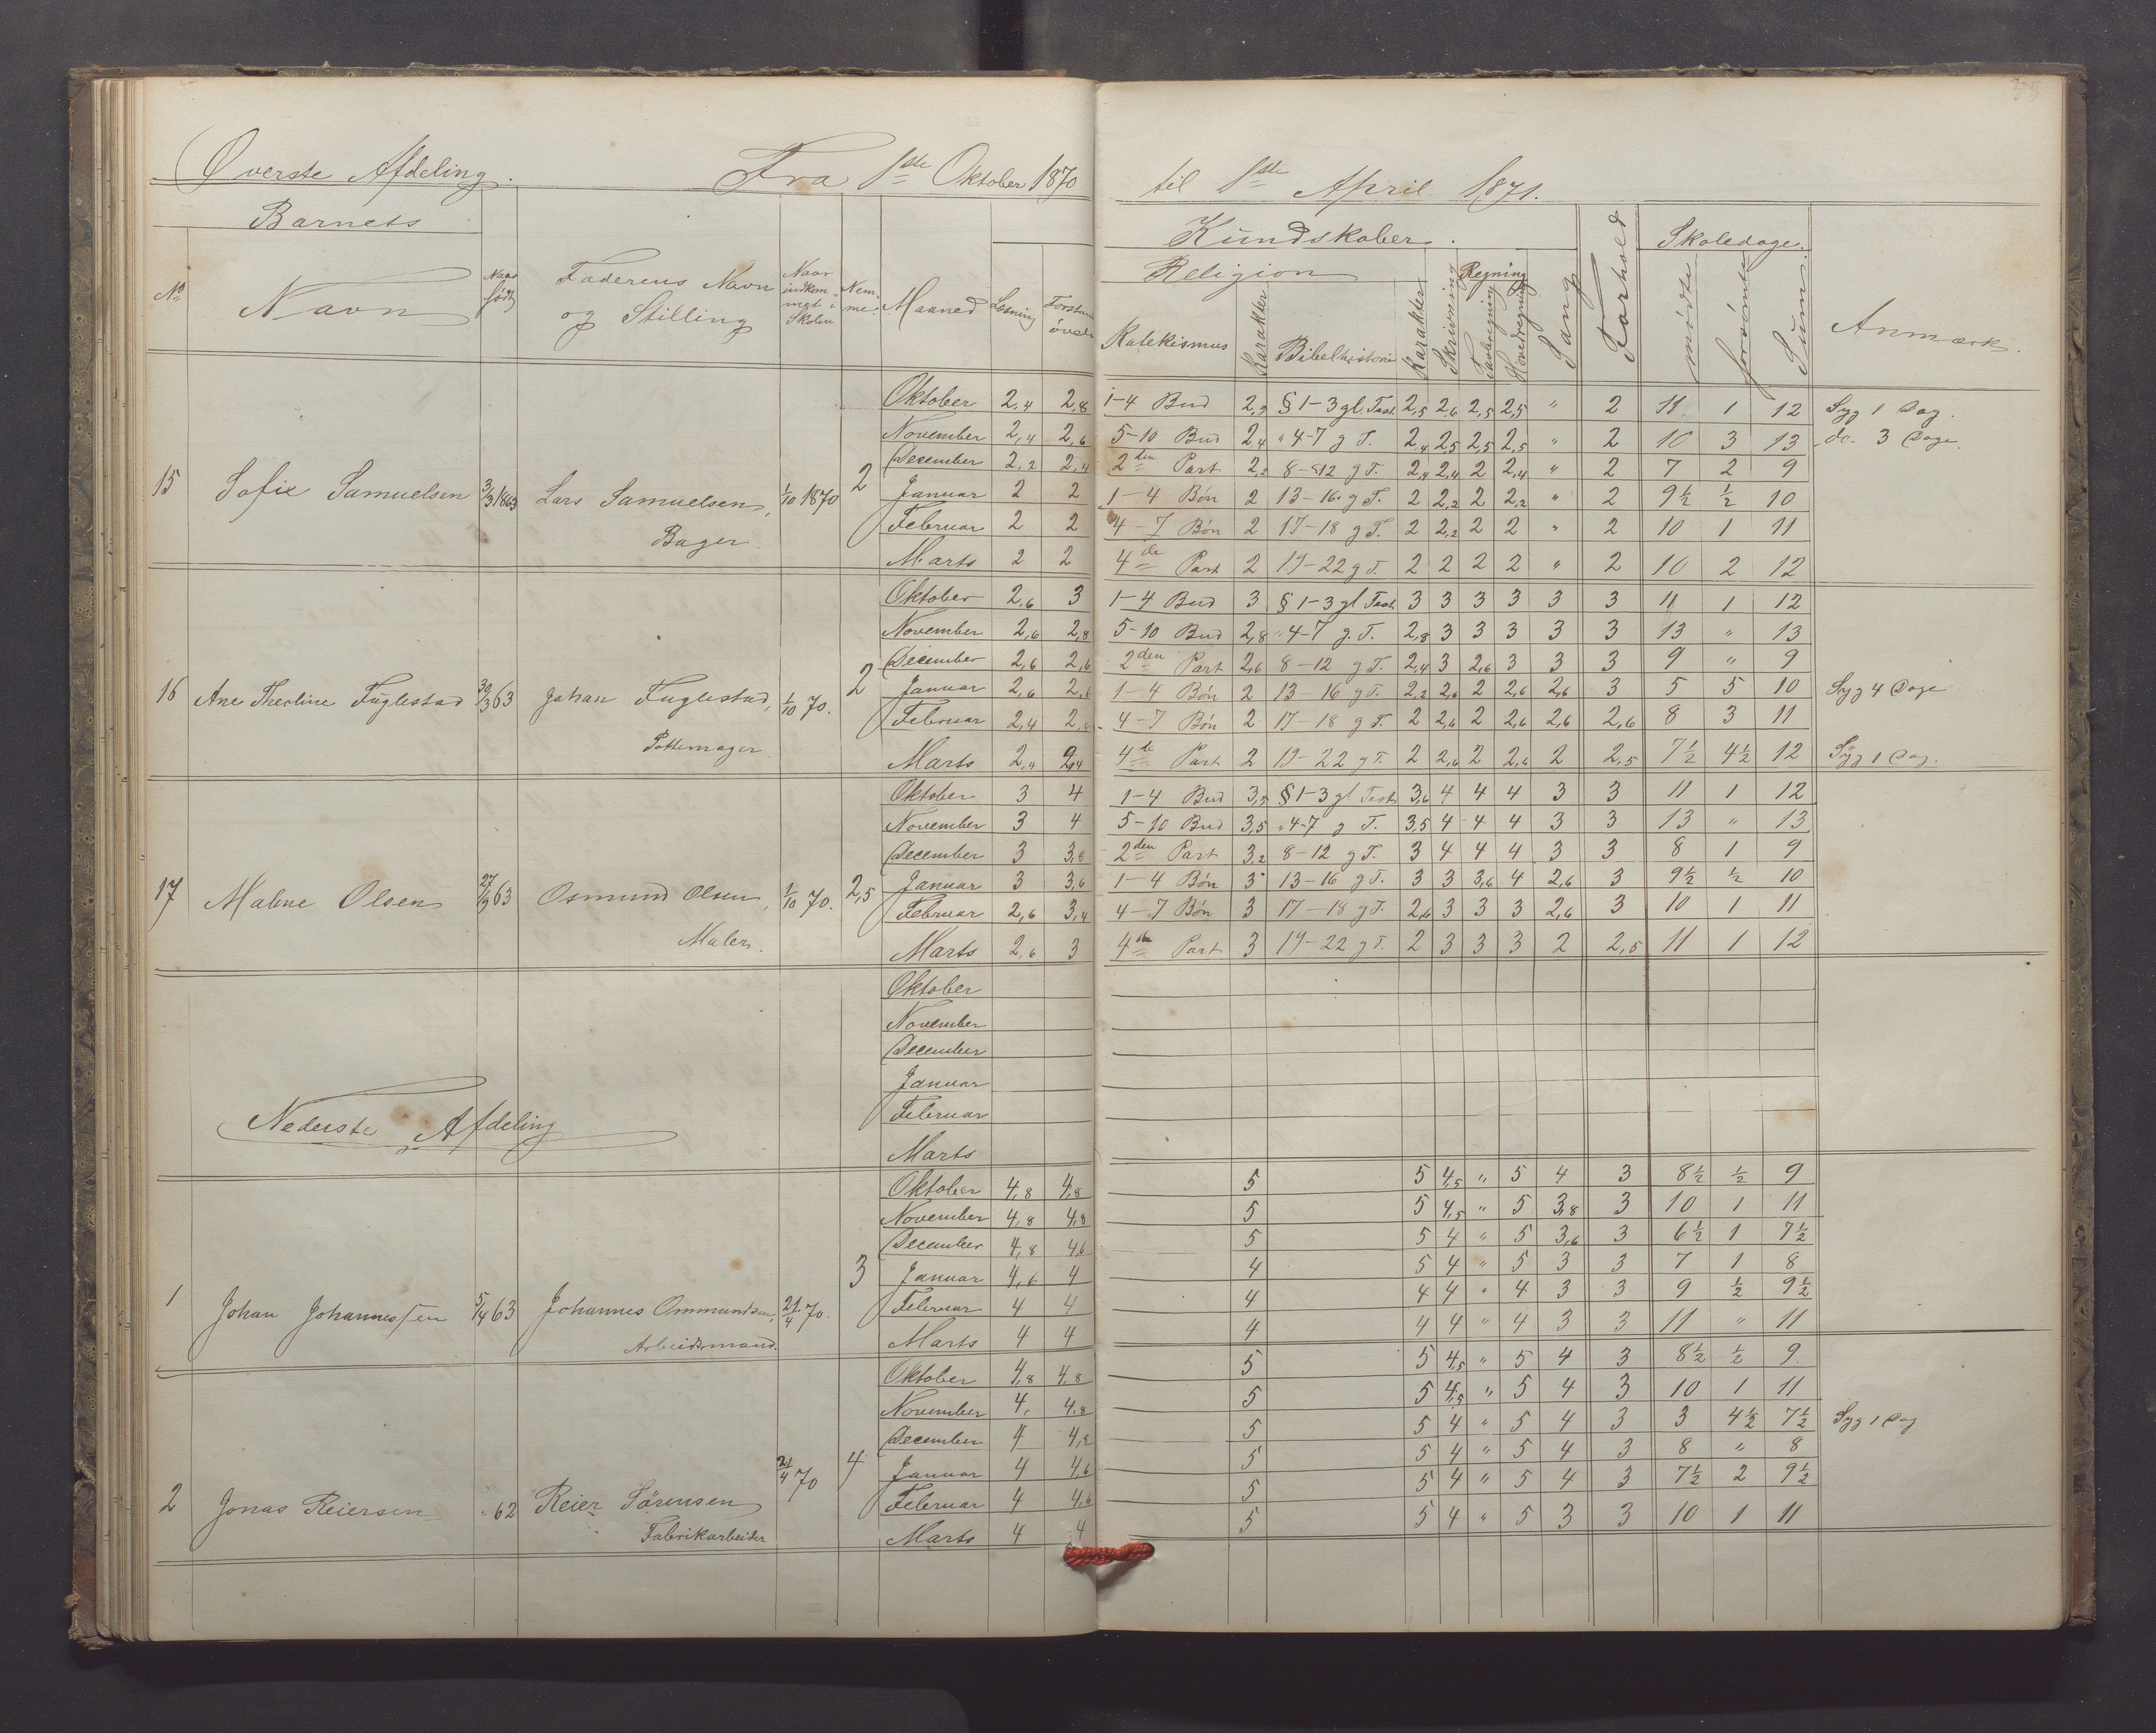 Øverste Afdeling. Fra 1ste Oktober 1870 til 1ste April 1871.
Barnets Kundskaber. Skoledage.
No Navn Naar født Faderens Navn og Stilling Naar indkommet i Skolen Nemme. Maaned Læsning Forstandsøvelse Religion Katekismus Karakter Bibelhistorie Karakter Skrivning Regning Tavleregning Hovedregning Sang Forhold mødte forsømte Sum. Anmærk.
Oktober 2,4 2,8 1-4 Bud 2,2 § 1-3 gl. Test. 2,5 2,6 2,5 2,5 " 2 11 1 12 Syg 1 Dag.
November 2,4 2,6 5-10 Bud 2,4 " 4-7 g T. 2,4 2,5 2,5 2,5 " 2 10 3 13 do. 3 Dage.
December 2,2 2,4 2den Part 2,2 8-12 g T. 2,4 2,4 2 2,4 " 2 7 2 9
15 Sofie Samuelsen 3/3 1863 Lars Samuelsen, 1/10 1870 2 Januar 2 2 1-4 Bøn 2 13-16 g T. 2 2,2 2 2,2 " 2 9½ ½ 10
Bager. Februar 2 2 4-7 Bøn 2 17-18 g T. 2 2,2 2 2 " 2 10 1 11
Marts 2 2 4de Part 2 19-22 g T. 2 2 2 2 " 2 10 2 12
Oktober 2,6 3 1-4 Bud 3 § 1-3 gl Test. 3 3 3 3 3 3 11 1 12
November 2,6 2,8 5-10 Bud 2,8 " 4-7 g. T. 2,8 3 3 3 3 3 13 " 13
December 2,6 2,6 2den Part 2,6 8-12 g T. 2,4 3 2,6 3 3 3 9 " 9
16 Ane Theoline Fuglestad 30/3 63 Johan Fuglestad, 1/10 70. 2 Januar 2,6 2,6 1-4 Bøn 2 13-16 g T. 2,2 2,6 2 2,6 2,6 3 5 5 10 Syg 4 Dage
Pottemager Februar 2,4 2, 4-7 Bøn 2 17-18 g T. 2 2,6 2 2,6 2,6 2,6 8 3 11
Marts 2,4 2,4 4de Part 2 19-22 g T. 2 2,6 2 2,6 2 2,5 7½ 4½ 12 Syg 1 Dag.
Oktober 3 4 1-4 Bud 3,5 § 1-3 gl Test. 3,6 4 4 4 3 3 11 1 12
November 3 4 5-10 Bud 3,5 " 4-7 g T. 3,5 4 4 4 3 3 13 " 13
December 3 3,8 2den Part 3,2 8-12 g T. 3 4 4 4 3 3 8 1 9
17 Malene Olsen 27/9 63 Osmund Olsen, 1/10 70. 2,5 Januar 3 3,6 1-4 Bøn 3 13-16 g T. 3 3 3,6 4 2,6 3 9½ ½ 10
Maler. Februar 2,6 3,4 4-7 Bøn 3 17-18 g T. 2,6 3 3 3 2,6 3 10 1 11
Marts 2,6 3 4de Part 3 19-22 g T. 2 3 3 3 2 2,5 11 1 12
Oktober
November
December
Januar
Nederste Afdeling Februar
Marts
Oktober 4,8 4,8 5 5 4,5 " 5 4 3 8½ ½ 9
November 4,8 4,8 5 5 4,5 " 5 3,8 3 10 1 11
December 4,8 4,6 5 5 4 " 5 3,6 3 6½ 1 7½
3 Januar 4,6 4 4 5 4 " 5 3 3 7 1 8
1 Johan Johannessen 5/4 63 Johannes Ommundsen, 21/4 70. Februar 4 4 4 4 4 " 4 3 3 9 ½ 9½
Arbeidsmand. Marts 4 4 4 4 4 " 4 3 3 11 " 11
Oktober 4,8 4,8 5 5 4,5 " 5 4 3 8½ ½ 9.
November 4, 4,8 5 5 4,5 " 5 4 3 10 1 11
December 4 4,8 5 5 4 " 5 4 3 3 4½ 7½ Syg 1 Dag
4 Januar 4 4,6 5 5 4 " 5 4 3 8 " 8
2 Jonas Reiersen " 62 Reier Sørensen 21/4 70 Februar 4 4,6 5 5 4 " 5 4 3 7½ 2 9½
Fabrikarbeider Marts 4 4 5 5 4 " 5 3 3 10 1 11